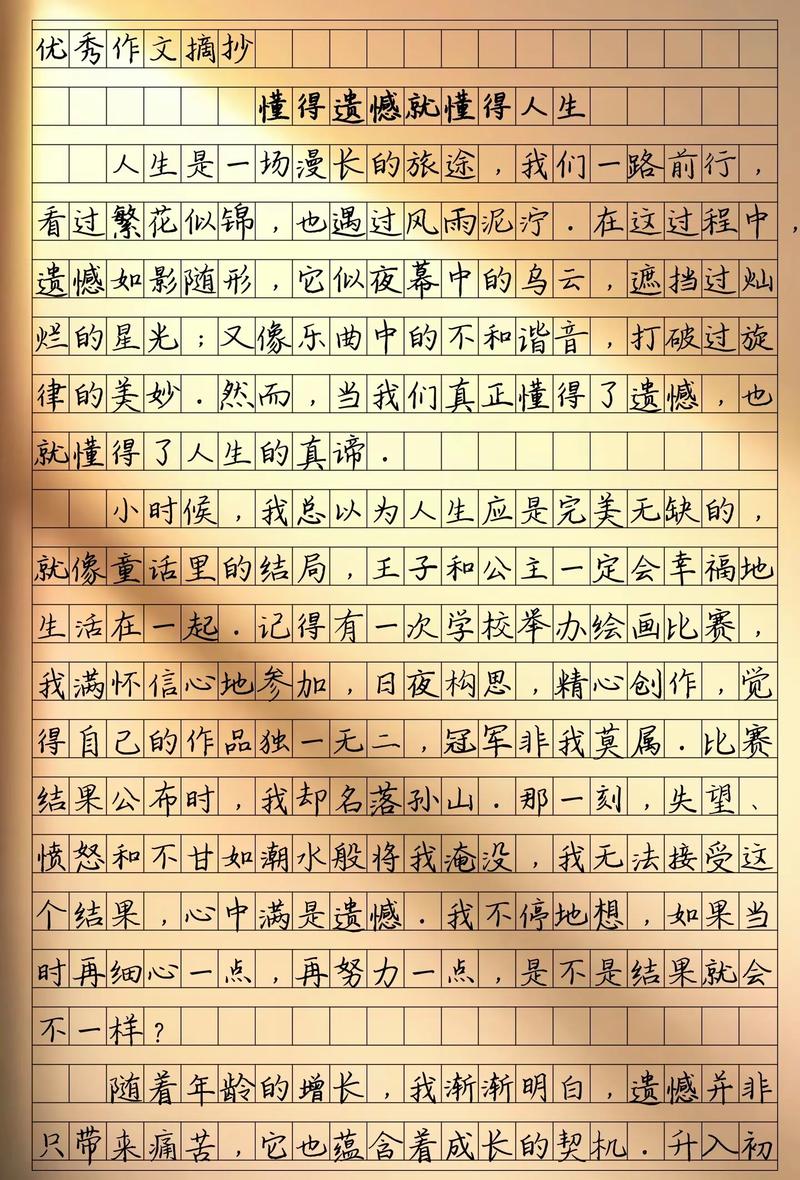 优秀作文摘抄
懂得遗憾就懂得人生
人生是一场漫长的旅途，我们一路前行，
看过繁花似锦，也遇过风雨泥泞．在这过程中，
遗憾如影随形，它似夜幕中的乌云，遮挡过灿
烂的星光；又像乐曲中的不和谐音，打破过旋
律的美妙．然而，当我们真正懂得了遗憾，也
就懂得了人生的真谛．
小时候，我总以为人生应是完美无缺的，
就像童话里的结局，王子和公主一定会幸福地
生活在一起．记得有一次学校举办绘画比赛，
我满怀信心地参加，日夜构思，精心创作，觉
得自己的作品独一无二，冠军非我莫属．比赛
结果公布时，我却名落孙山．那一刻，失望、
愤怒和不甘如潮水般将我淹没，我无法接受这
个结果，心中满是遗憾．我不停地想，如果当
时再细心一点，再努力一点，是不是结果就会
不一样？
随着年龄的增长，我渐渐明白，遗憾并非
只带来痛苦，它也蕴含着成长的契机．升入初